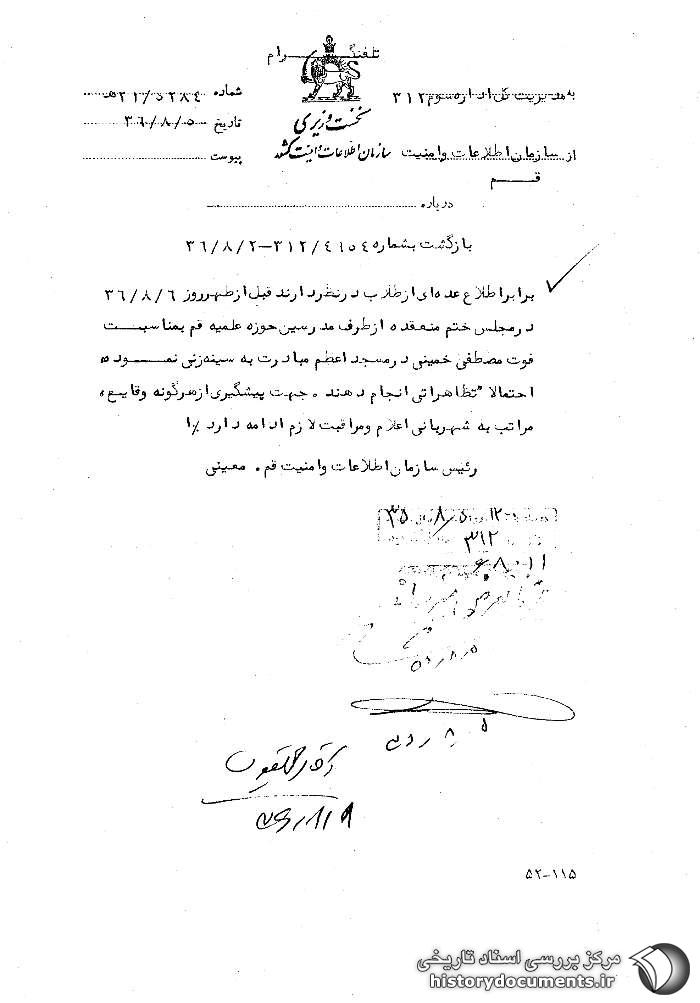 تلفنگرام
به مدیریت کل اداره سوم ۳۱۲
شماره ۲۱/۵۲۸۴ هـ
نخست وزیری
تاریخ ۳۶/۸/۵
از سازمان اطلاعات و امنیت قم
سازمان اطلاعات و امنیت کشور
پیوست
درباره
بازگشت بشماره ۳۱۲/۴۱۵۴-۳۶/۸/۲
برابر اطلاع عده‌ای از طلاب در نظر دارند قبل از ظهر روز ۳۶/۸/۶
در مجلس ختم منعقده از طرف مدرسین حوزه علمیه قم بمناسبت
فوت مصطفی خمینی در مسجد اعظم مبادرت به سینه‌زنی نموده
احتمالا" تظاهراتی انجام دهند . جهت پیشگیری از هرگونه وقایع ،
مراتب به شهربانی اعلام و مراقبت لازم ادامه دارد ٪۱
رئیس سازمان اطلاعات و امنیت قم . معینی
۳۱۲
۵۲-۱۱۵
مرکز بررسی اسناد تاریخی
historydocuments.ir